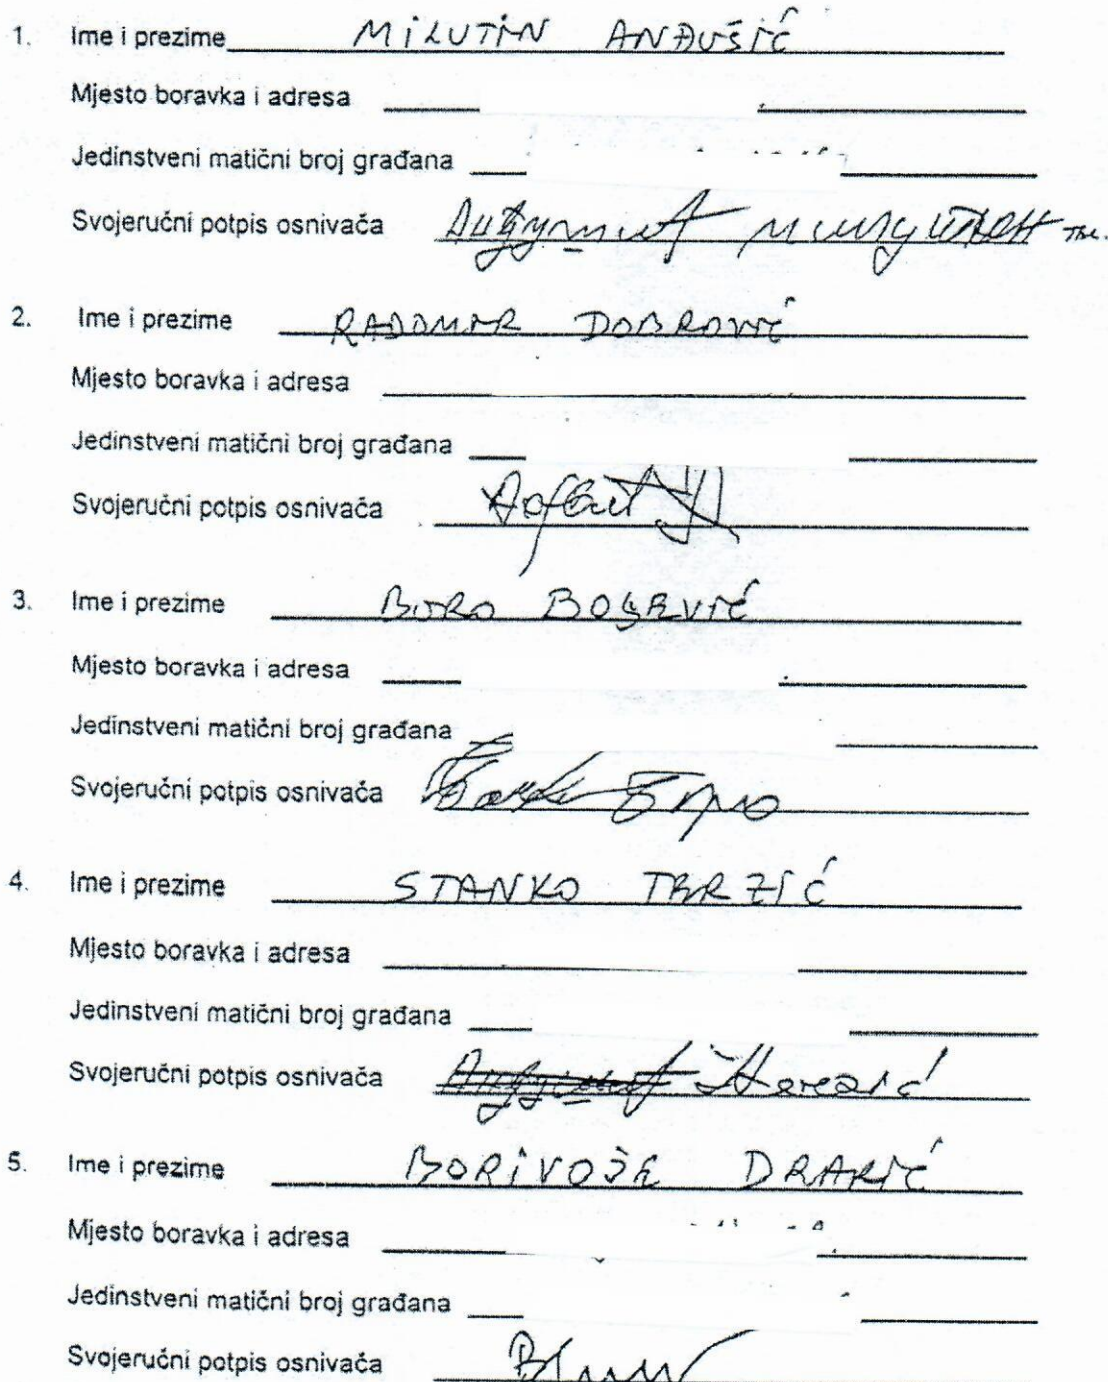 1. Ime i prezime MiLUTIN ANĐUŠIĆ
Mjesto boravka i adresa
Jedinstveni matični broj građana
Svojeručni potpis osnivača
2. Ime i prezime RADOMIR DOBROVIĆ
Mjesto boravka i adresa
Jedinstveni matični broj građana
Svojeručni potpis osnivača
3. Ime i prezime
Mjesto boravka i adresa
Jedinstveni matični broj građana
Svojeručni potpis osnivača
4. Ime i prezime STANKO TERZIĆ
Mjesto boravka i adresa
Jedinstveni matični broj građana
Svojeručni potpis osnivača
5. Ime i prezime BORiVOJE
Mjesto boravka i adresa
Jedinstveni matični broj građana
Svojeručni potpis osnivača